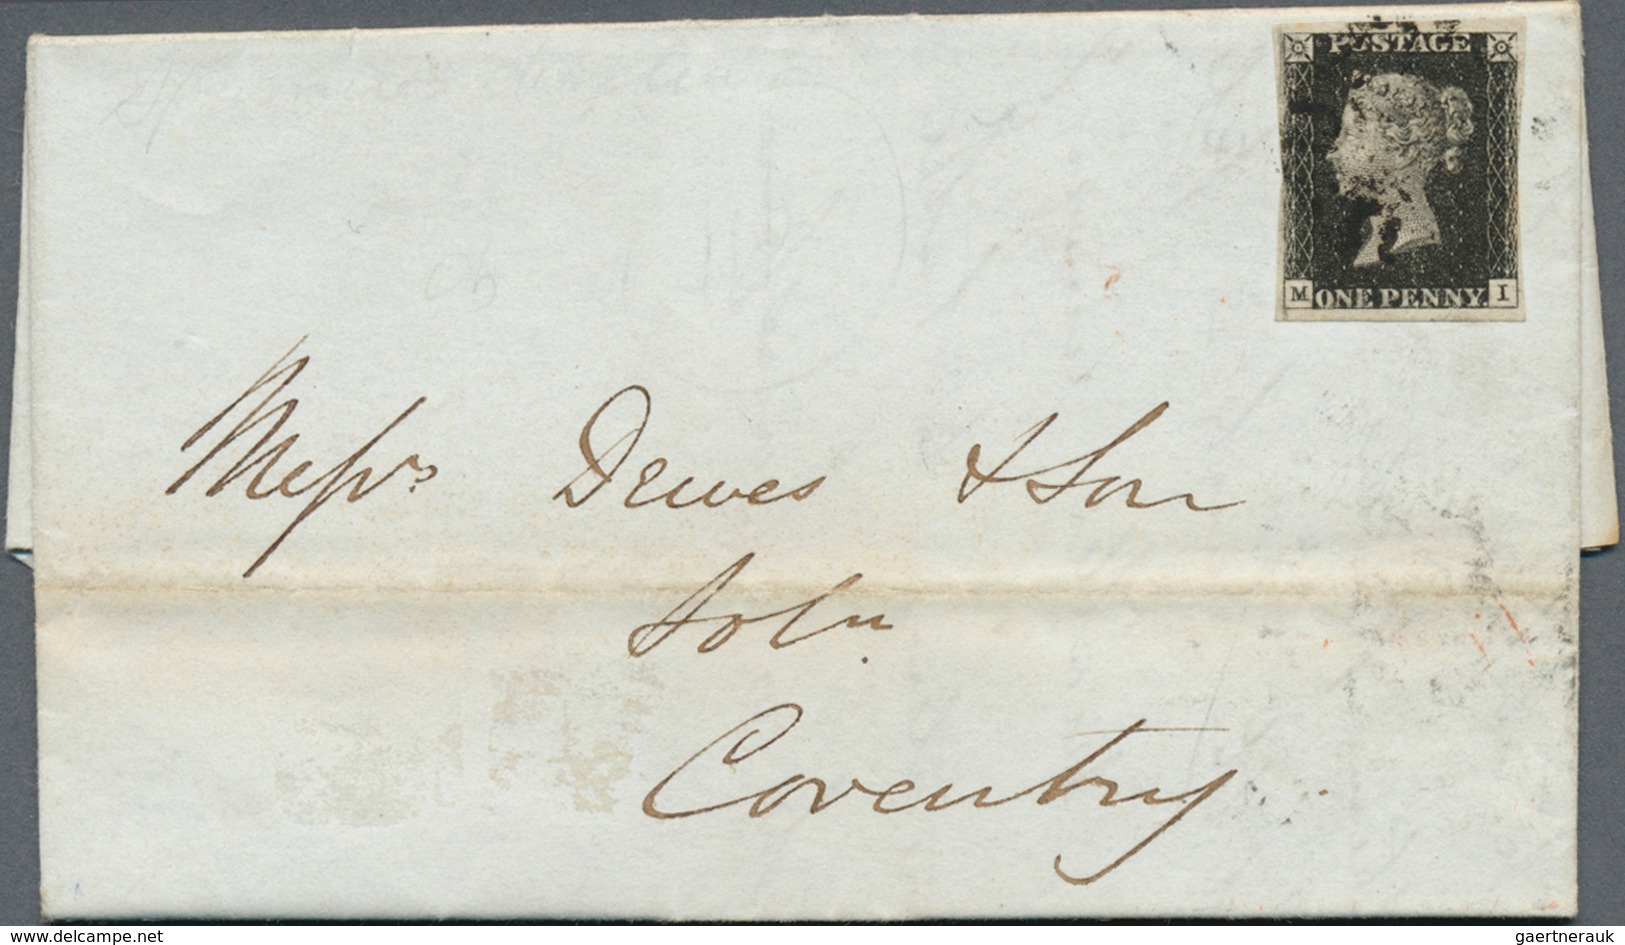 POSTAGE
M ONE PENNY. I
Messrs Dewes & Son
Solrs
Coventry
delcampe.net
gaertnerauk